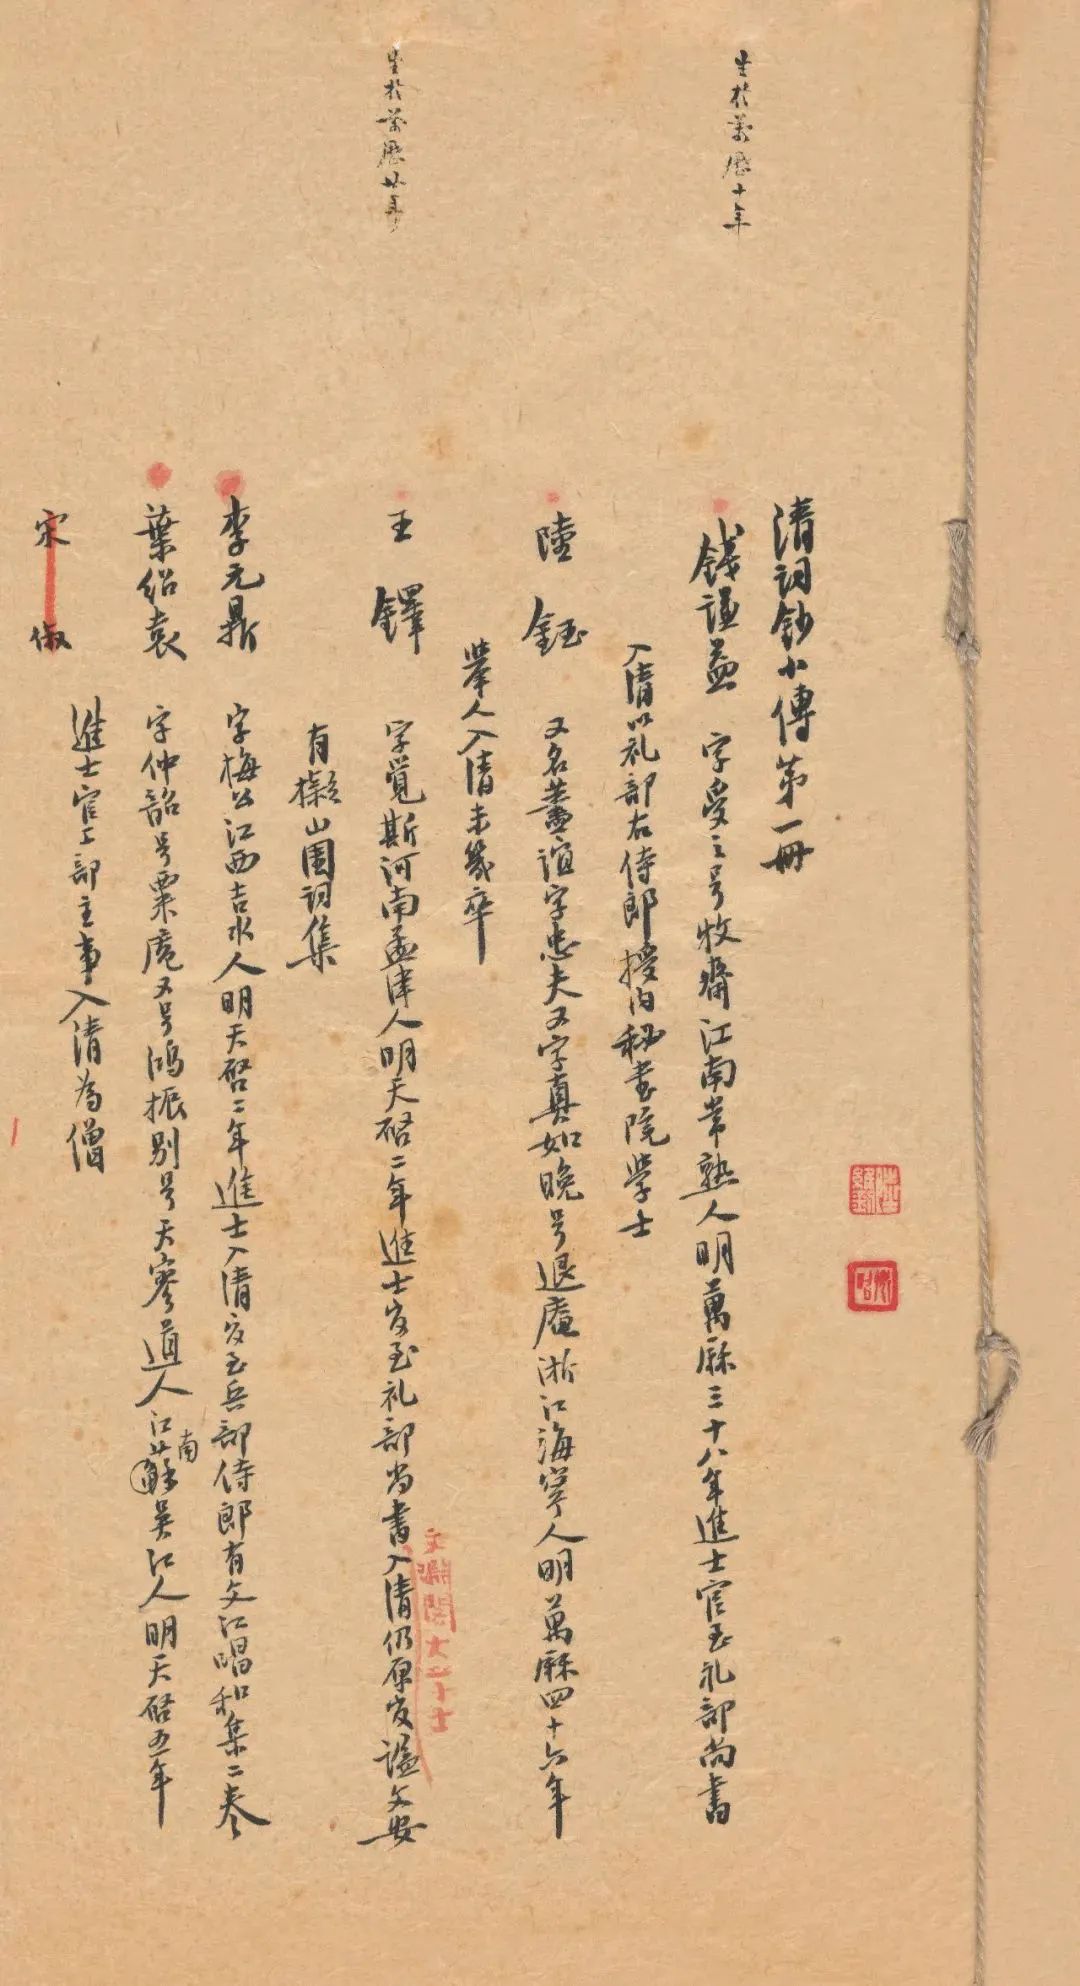 生於萬歷十年
生於萬歷廿年
清詞鈔小傳第一冊
錢謙益 字受之号牧齋江南常熟人明萬厤三十八年進士官至礼部尚書
入清以礼部右侍郎授内秘書院学士
陸鈺 又名藎誼字忠夫又字真如晚号退庵浙江海寧人明萬厤四十六年
举人入清未幾卒
王鐸 字覺斯河南孟津人明天啓二年進士官至礼部尚書入清仍原官謚文安
有擬山園詞集
李元鼎 字梅公江西吉水人明天啓二年進士入清官至兵部侍郎有文江唱和集二卷
葉紹袁 字仲韶号粟庵又号鴻振别号天寥道人江蘇吴江人明天啓五年
南
進士官工部主事入清為僧
宋俶